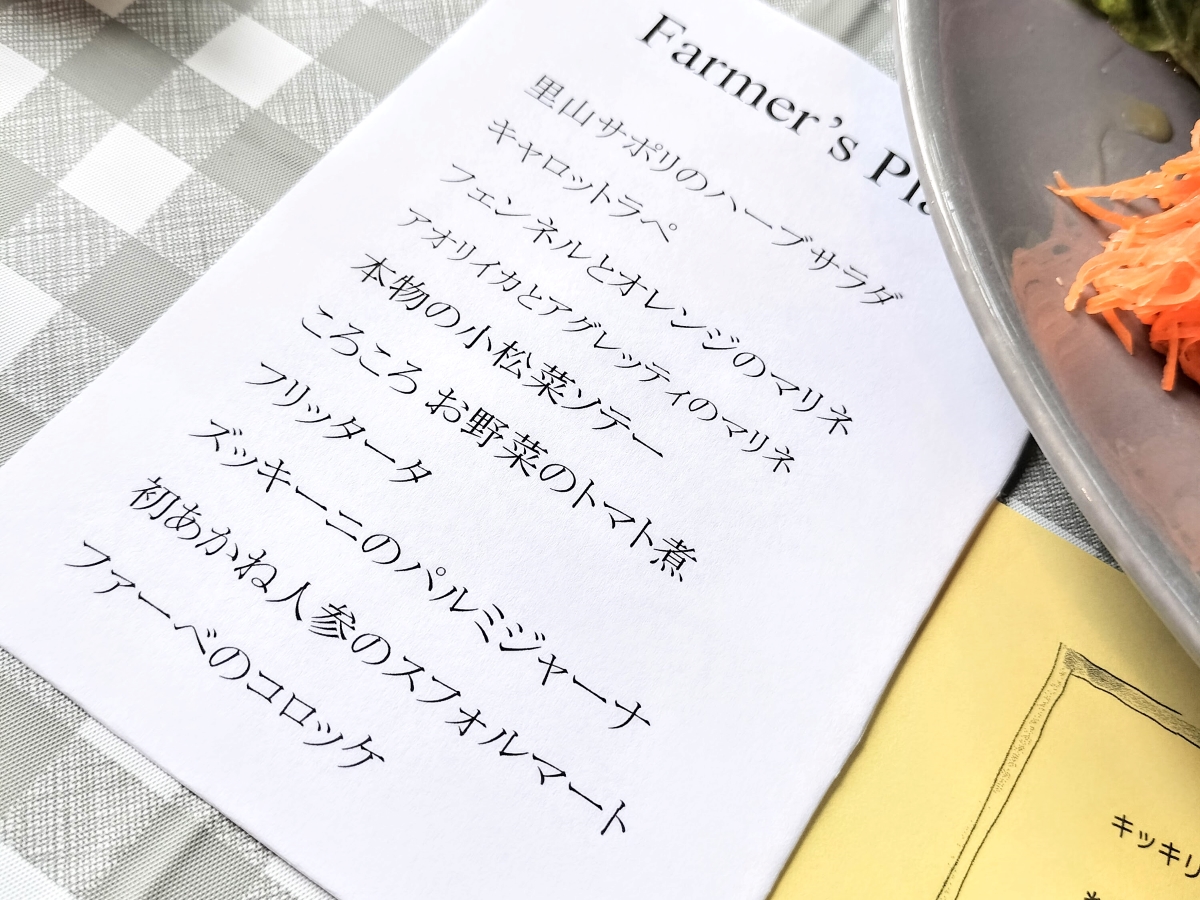 Farmer's Pla
里山サポリのハーブサラダ
キャロットラペ
フェンネルとオレンジのマリネ
アオリイカとアグレッティのマリネ
本物の小松菜ソテー
ころころ お野菜のトマト煮
フリッタータ
ズッキーニのパルミジャーナ
初あかね人参のスフォルマート
ファーベのコロッケ
キッキリ